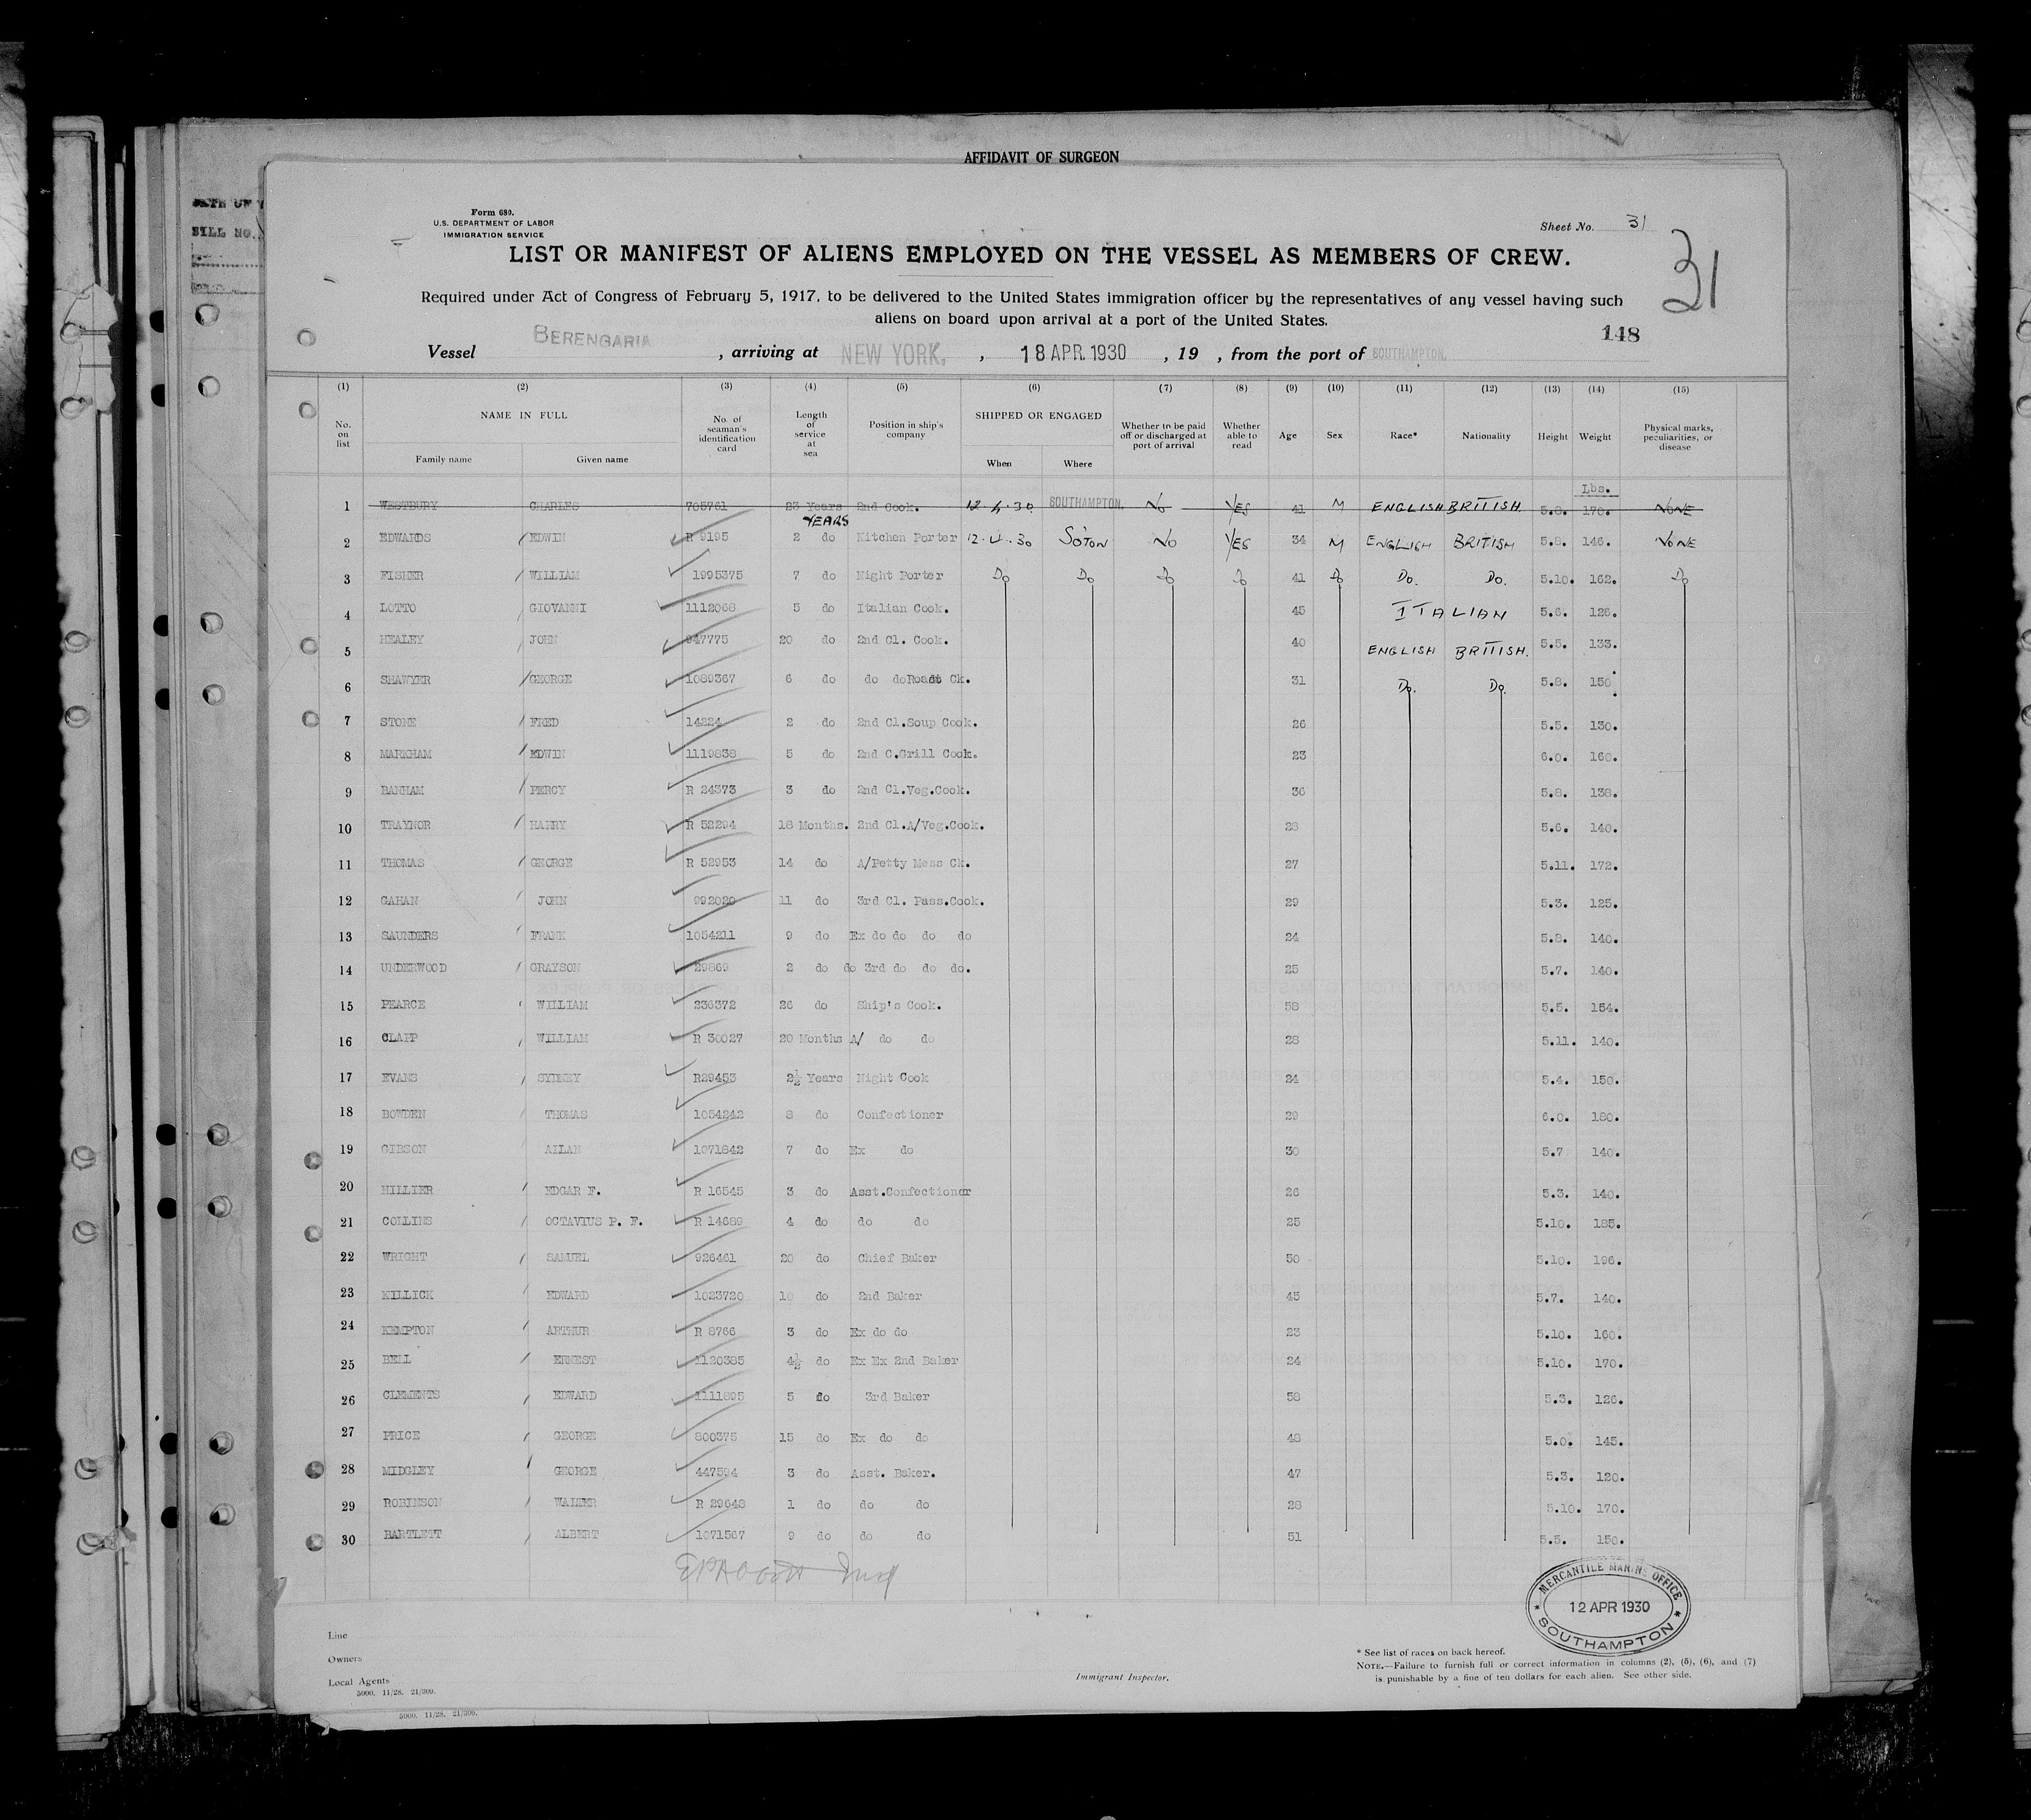 AFFIDAVIT OF SURGEON
BILL NO.
Form 680.
U.S. DEPARTMENT OF LABOR
IMMIGRATION SERVICE
Sheet No. 31
31
LIST OR MANIFEST OF ALIENS EMPLOYED ON THE VESSEL AS MEMBERS OF CREW.
Required under Act of Congress of February 5, 1917, to be delivered to the United States immigration officer by the representatives of any vessel having such
aliens on board upon arrival at a port of the United States.
148
Vessel BERENGARIA , arriving at NEW YORK. , 18 APR. 1930 , 19 , from the port of SOUTHAMPTON.
(1) (2) (3) (4) (5) (6) (7) (8) (9) (10) (11) (12) (13) (14) (15)
No. on list NAME IN FULL Family name Given name No. of seaman's identification card Length of service at sea Position in ship's company SHIPPED OR ENGAGED When Where Whether to be paid off or discharged at port of arrival Whether able to read Age Sex Race* Nationality Height Weight Physical marks, peculiarities, or disease
Lbs.
1 WESTBURY CHARLES 705761 23 Years 2nd Cook. 12.4.30 SOUTHAMPTON. No YES 41 M ENGLISH BRITISH 5.8. 170. NONE
YEARS
2 EDWARDS EDWIN R 9195 2 do Kitchen Porter 12.4.30 SOTON NO YES 34 M ENGLISH BRITISH 5.8. 146. NONE
3 FISHER WILLIAM 1995375 7 do Night Porter Do Do Do Do 41 Do Do. Do. 5.10. 162. Do
4 LOTTO GIOVANNI 1112068 5 do Italian Cook. 45 ITALIAN 5.6. 126.
5 HEALEY JOHN 947775 20 do 2nd Cl. Cook. 40 ENGLISH BRITISH. 5.5. 133.
6 SHAWYER GEORGE 1089367 6 do do do Roast Ck. 31 Do. Do. 5.8. 150.
7 STONE FRED 14224 2 do 2nd Cl.Soup Cook. 26 5.5. 130.
8 MARKHAM EDWIN 1119838 5 do 2nd C.Grill Cook. 23 6.0. 160.
9 BANHAM PERCY R 24373 3 do 2nd Cl.Veg.Cook. 36 5.8. 138.
10 TRAYNOR HARRY R 52294 18 Months. 2nd Cl.A/Veg.Cook. 28 5.6. 140.
11 THOMAS GEORGE R 52953 14 do A/Petty Mess Ck. 27 5.11. 172.
12 GAHAN JOHN 992020 11 do 3rd Cl. Pass.Cook. 29 5.3. 125.
13 SAUNDERS FRANK 1054211 9 do Ex do do do do 24 5.8. 140.
14 UNDERWOOD GRAYSON 29869 2 do do 3rd do do do. 25 5.7. 140.
15 PEARCE WILLIAM 236372 26 do Ship's Cook. 58 5.5. 154.
16 CLAPP WILLIAM R 30027 20 Months A/ do do 28 5.11. 140.
17 EVANS SYDNEY R29453 2½ Years Night Cook 24 5.4. 150.
18 BOWDEN THOMAS 1054242 8 do Confectioner 29 6.0. 180.
19 GIBSON ALLAN 1071842 7 do Ex do 30 5.7 140.
20 HILLIER EDGAR F. R 16545 3 do Asst.Confectioner 26 5.3. 140.
21 COLLINS OCTAVIUS P. F. R 14689 4 do do do 25 5.10. 185.
22 WRIGHT SAMUEL 926461 20 do Chief Baker 50 5.10. 196.
23 KILLICK EDWARD 1023720 10 do 2nd Baker 45 5.7. 140.
24 KEMPTON ARTHUR R 8766 3 do Ex do do 23 5.10. 160.
25 BELL ERNEST 1120385 4½ do Ex Ex 2nd Baker 24 5.10. 170.
26 CLEMENTS EDWARD 1111895 5 do 3rd Baker 58 5.3. 126.
27 PRICE GEORGE 800375 15 do Ex do do 48 5.0. 145.
28 MIDGLEY GEORGE 447594 3 do Asst. Baker. 47 5.3. 120.
29 ROBINSON WALTER R 29648 1 do do do 28 5.10. 170.
30 BARTLETT ALBERT 1071567 9 do do do 51 5.5. 150.
MERCANTILE MARINE OFFICE
12 APR 1930
SOUTHAMPTON
Line
Owners
Local Agents
5000. 11/28. 21/309.
Immigrant Inspector.
* See list of races on back hereof.
NOTE.—Failure to furnish full or correct information in columns (2), (5), (6), and (7)
is punishable by a fine of ten dollars for each alien. See other side.
5000. 11/28. 21/309.